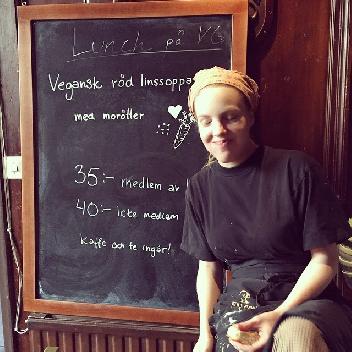 Lunch på VG
Vegansk röd linssoppa
med morötter
35:- medlem av
40:- icke medlem
Kaffe och te ingår!